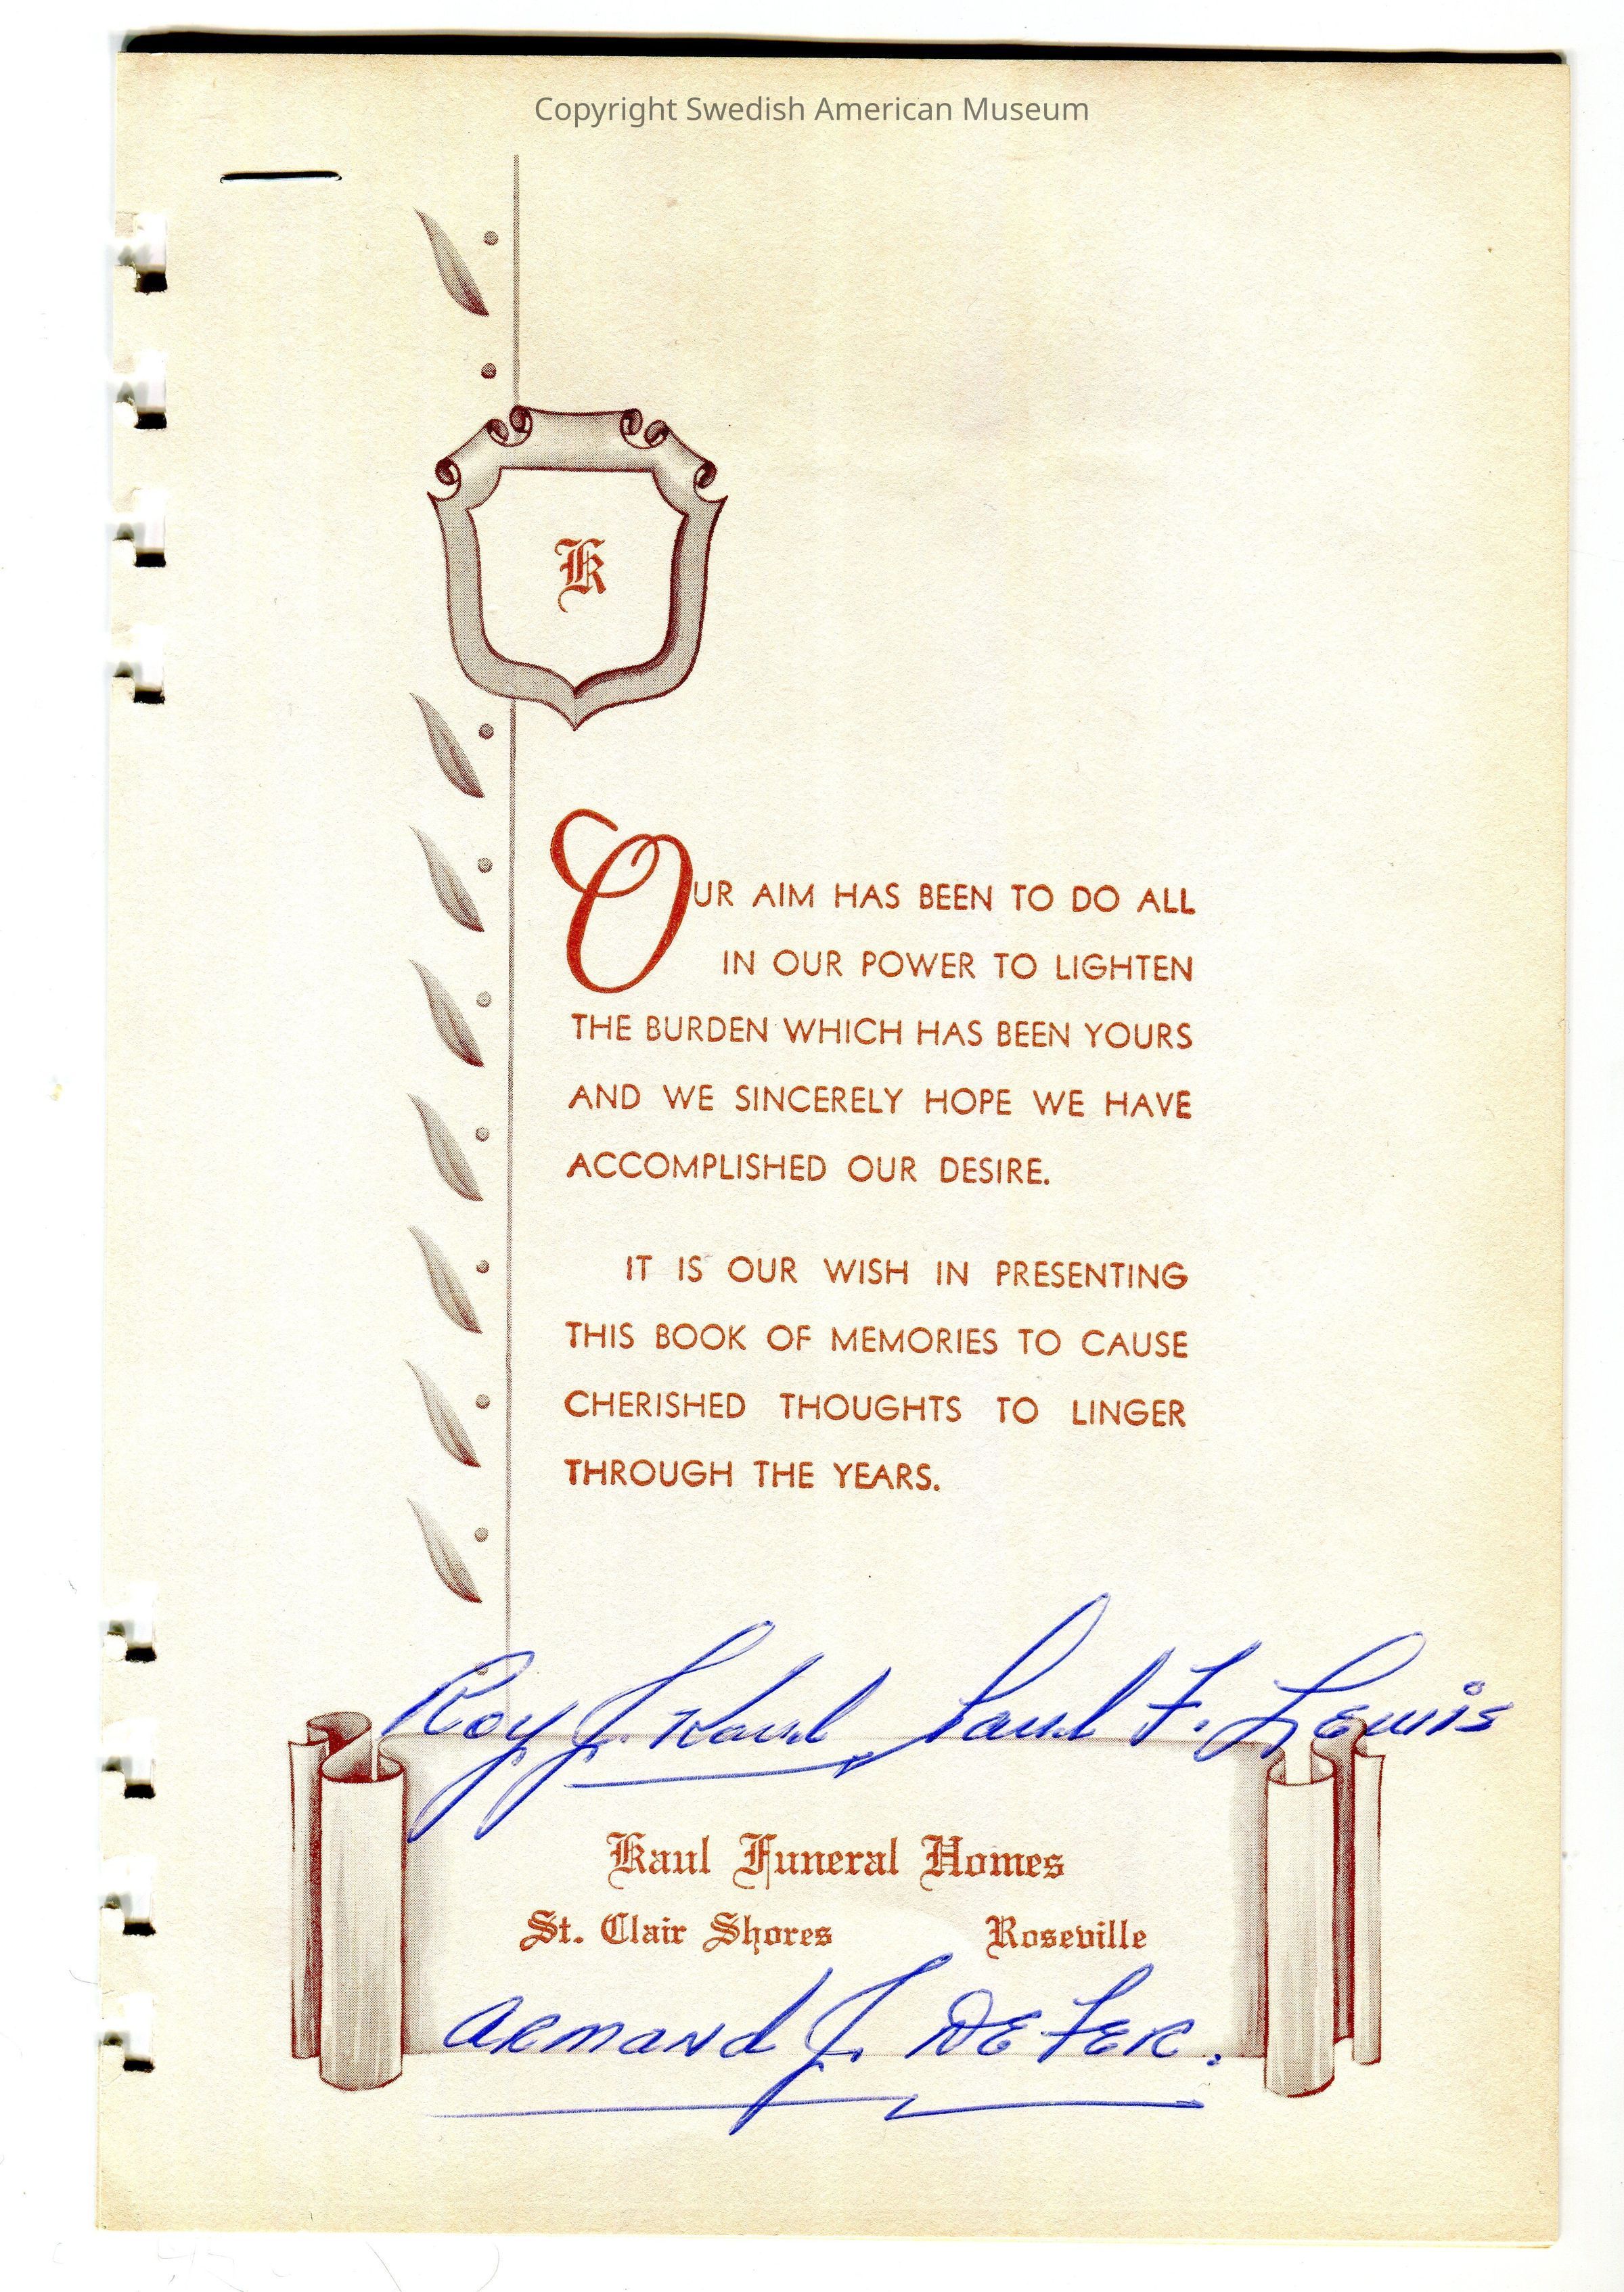 Copyright Swedish American Museum
K
OUR AIM HAS BEEN TO DO ALL
IN OUR POWER TO LIGHTEN
THE BURDEN WHICH HAS BEEN YOURS
AND WE SINCERELY HOPE WE HAVE
ACCOMPLISHED OUR DESIRE.
IT IS OUR WISH IN PRESENTING
THIS BOOK OF MEMORIES TO CAUSE
CHERISHED THOUGHTS TO LINGER
THROUGH THE YEARS.
Roy J. Kaul Paul F. Lewis
Kaul Funeral Homes
St. Clair Shores Roseville
Armand J. DeFer.